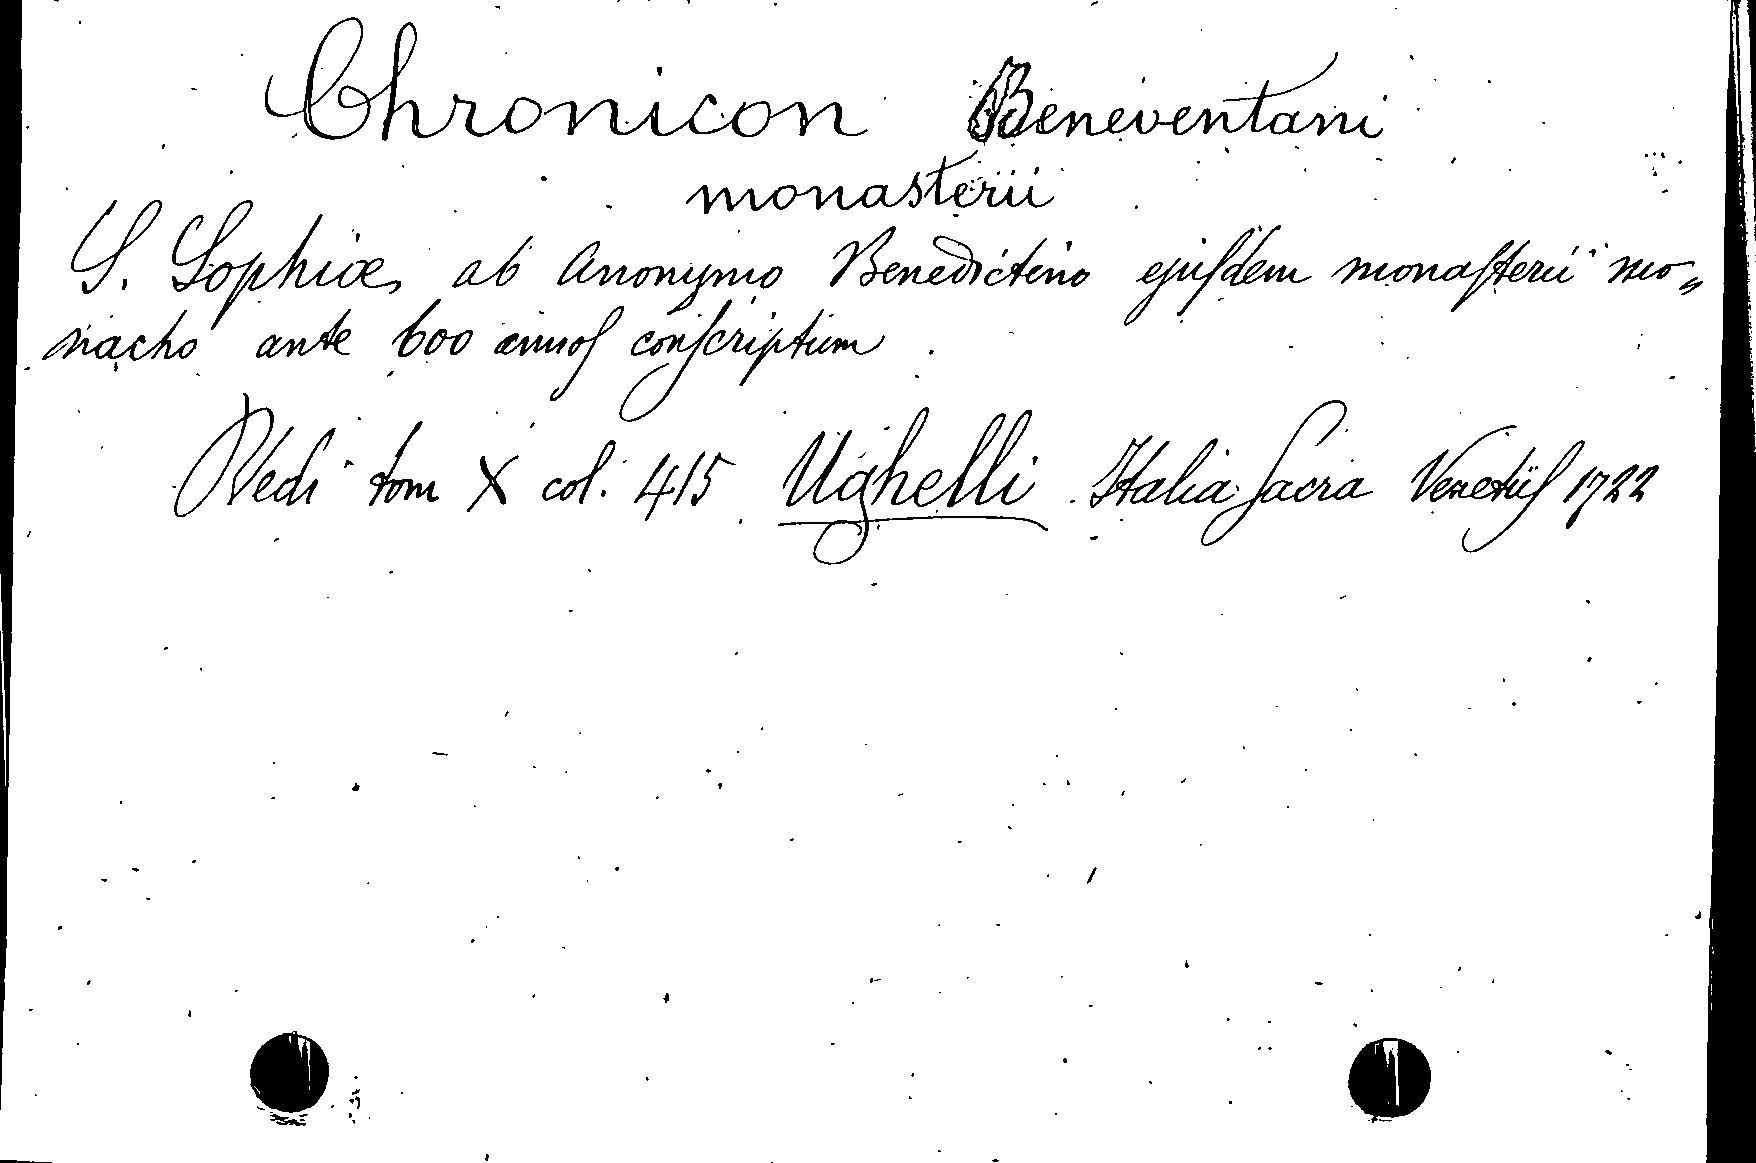 Chronicon Beneventani
monasterii
S. Sophiæ, ab Anonymo Benedictino ejuſdem monaſterii mo„
nacho ante 600 annoſ conſcriptum
Vedi tom X col. 415 Ughelli Italia ſacra Venetiiſ 1722